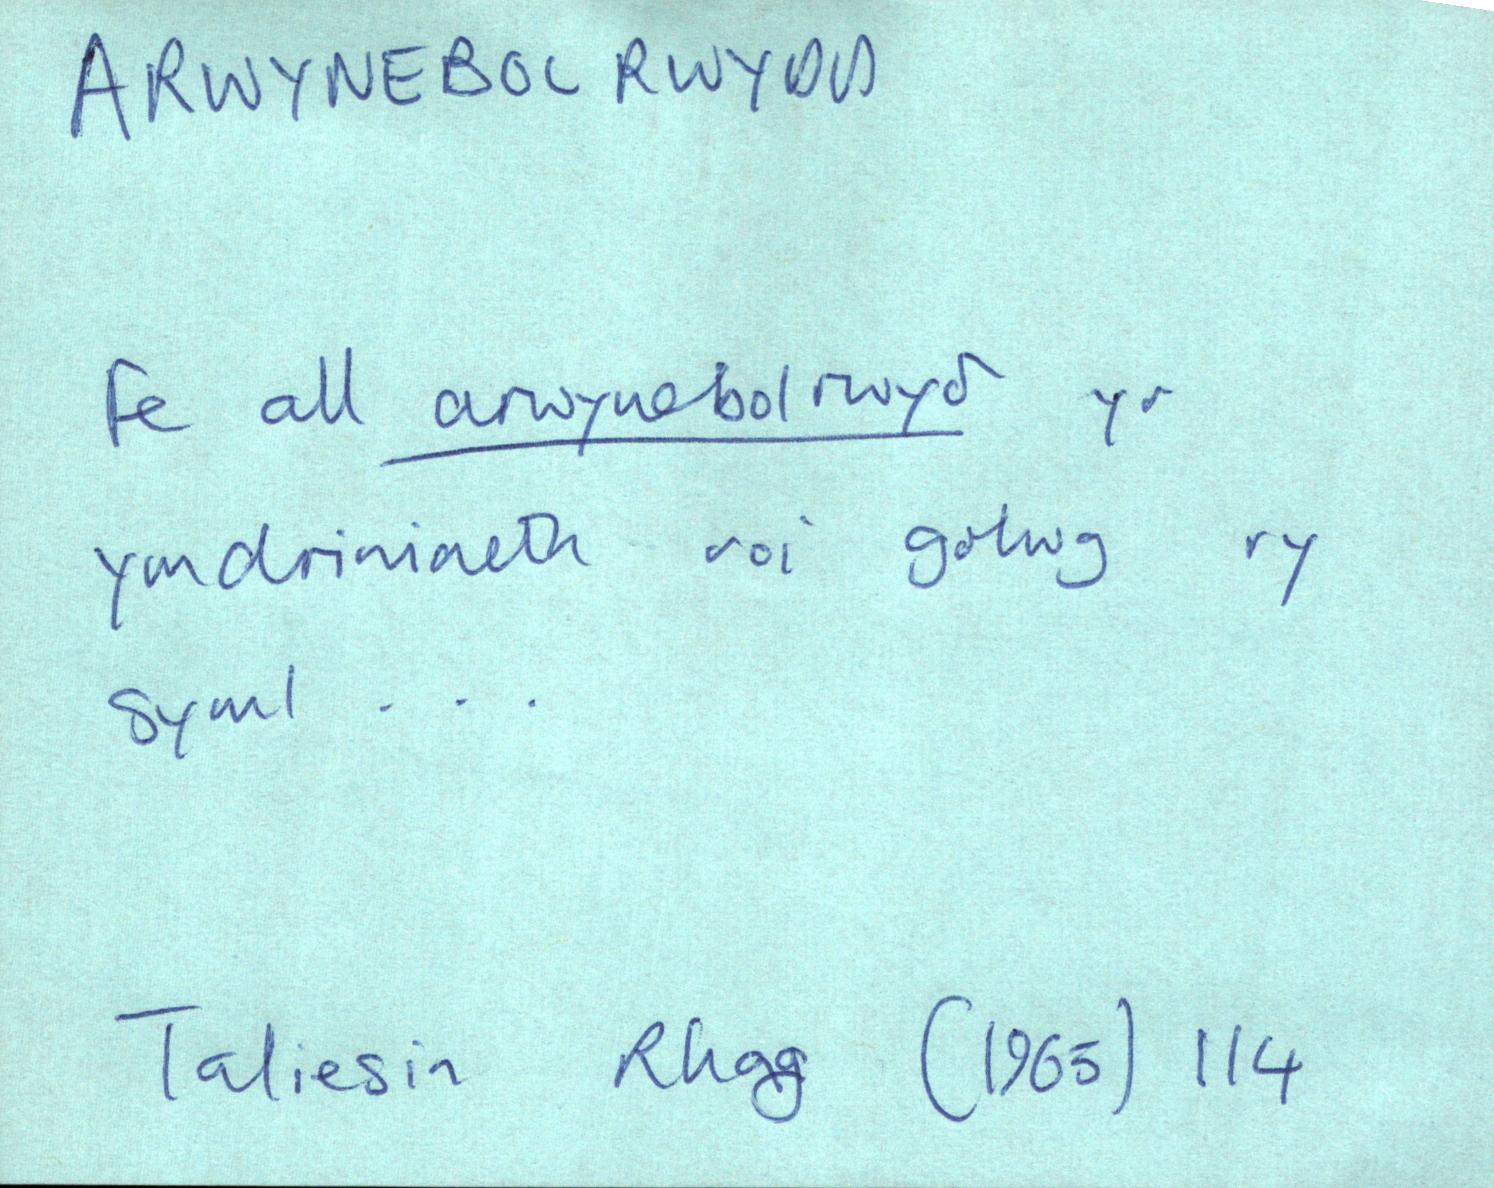 ARWYNEBOLRWYDD
Fe all arwynebolrwyδ yr
ymdriniaeth roi golwg ry
syml . . .
Taliesin Rhag (1965) 114